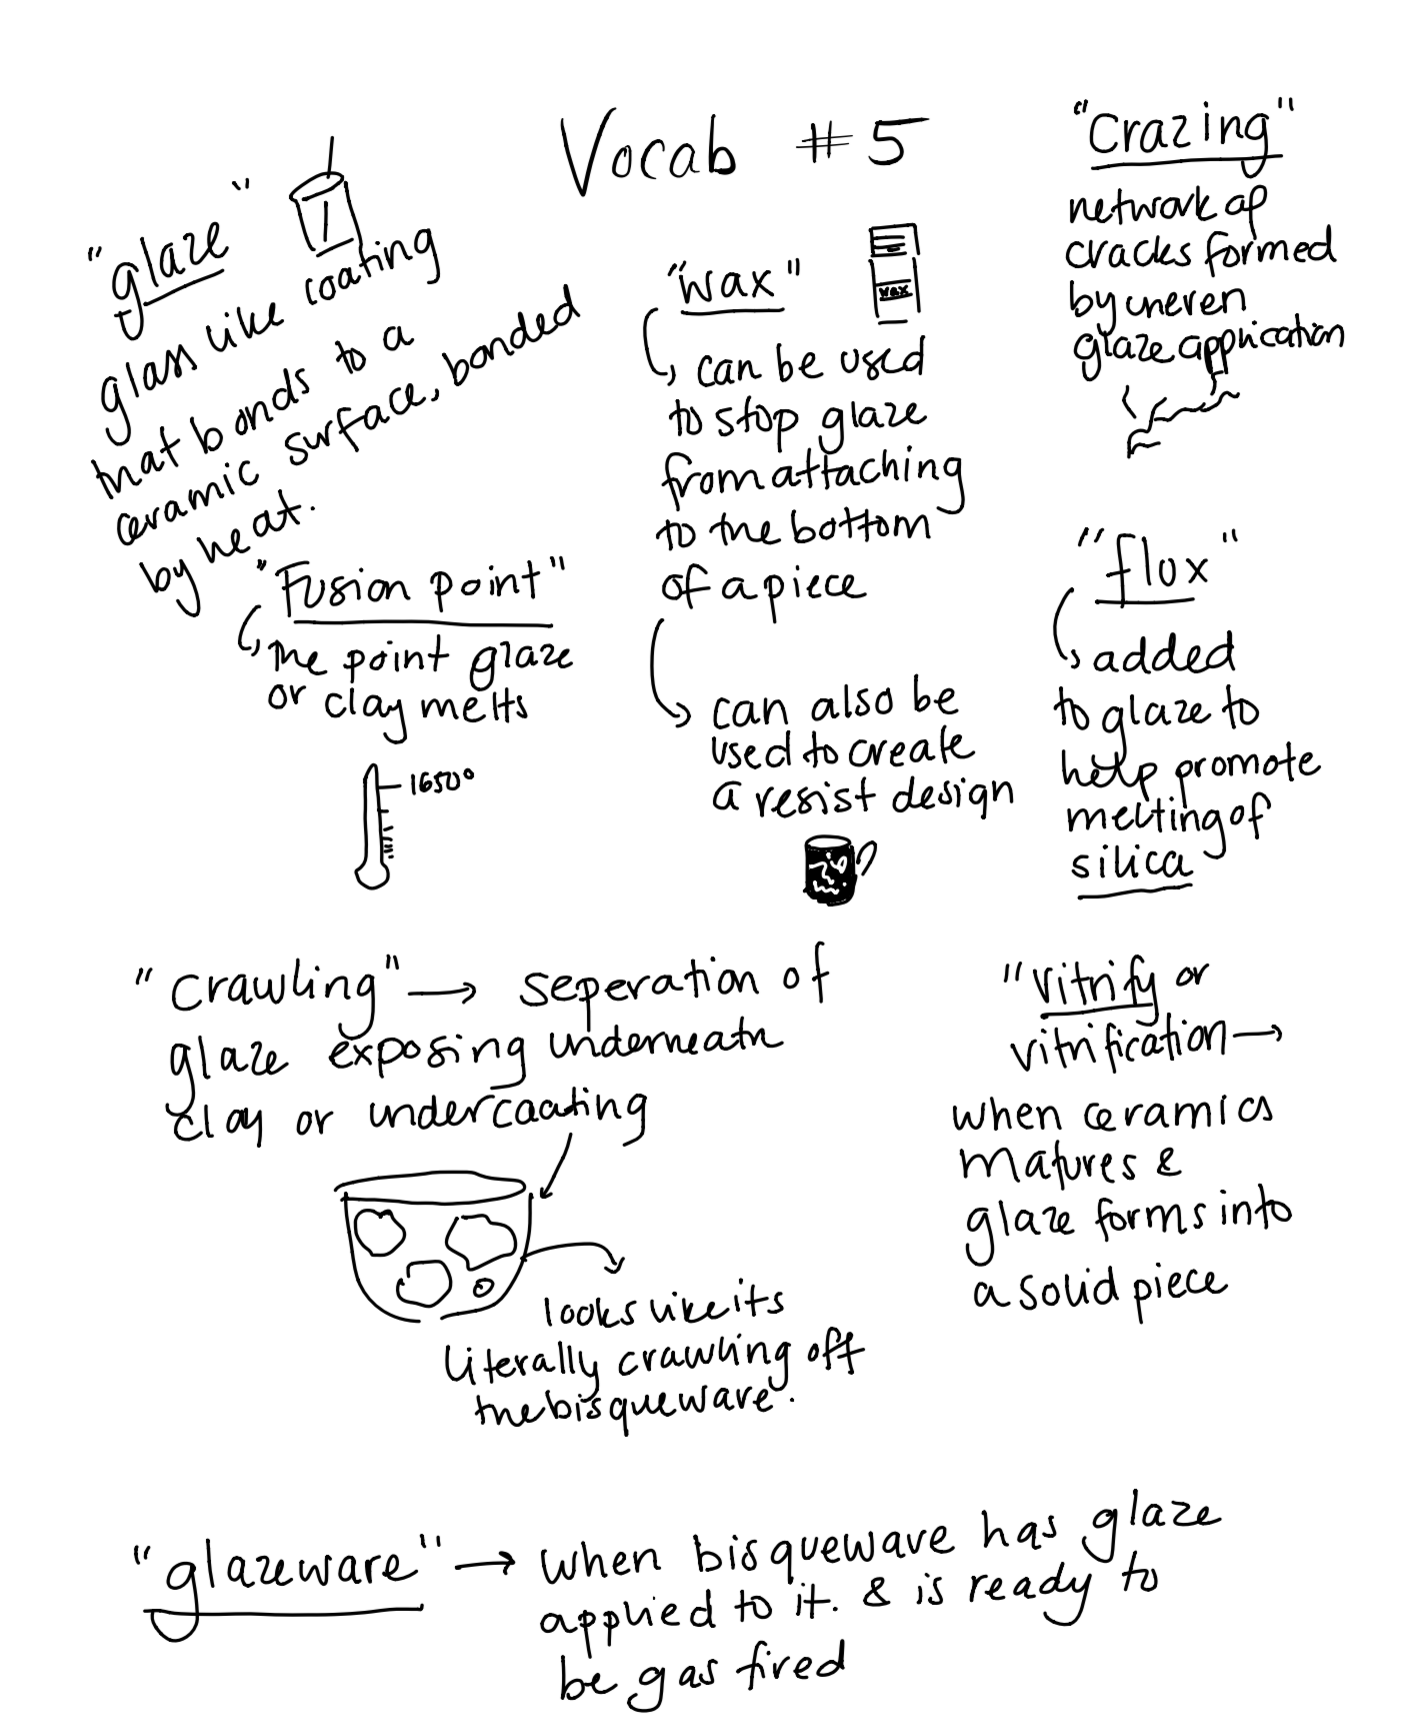 Vocab #5
"glaze"
glass like coating
that bonds to a
ceramic surface, bonded
by heat.
"Fusion point"
the point glaze
or clay melts
1650°
"wax"
wax
can be used
to stop glaze
from attaching
to the bottom
of a piece
can also be
used to create
a resist design
"Crazing"
network of
cracks formed
by uneven
glaze application
"flux"
added
to glaze to
help promote
melting of
silica
"crawling" → seperation of
glaze exposing underneath
clay or undercoating
looks like its
literally crawling off
the bisqueware.
"Vitrify or
vitrification →
when ceramics
matures &
glaze forms into
a solid piece
"glazeware" → when bisqueware has glaze
applied to it. & is ready to
be gas fired